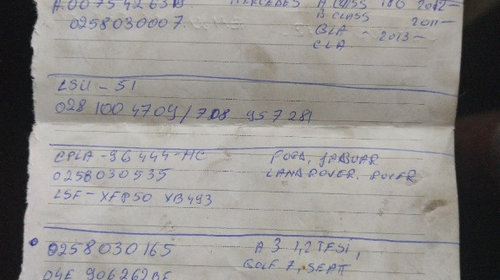 A.0075426318 MERCEDES A CLASS 180 2012-
0258030007 B CLASS 2011-
GLA - 2013-
CLA
LSU - 51
028 100 4709/708 957281
CPLA-96444-HC FORD, JAGUAR
0258030535 LANDROVER. ROVER
LSF-XFP50 XB493
0258030165 A 3 1,2 TFSI,
GOLF 7, SEAT
04E 906262